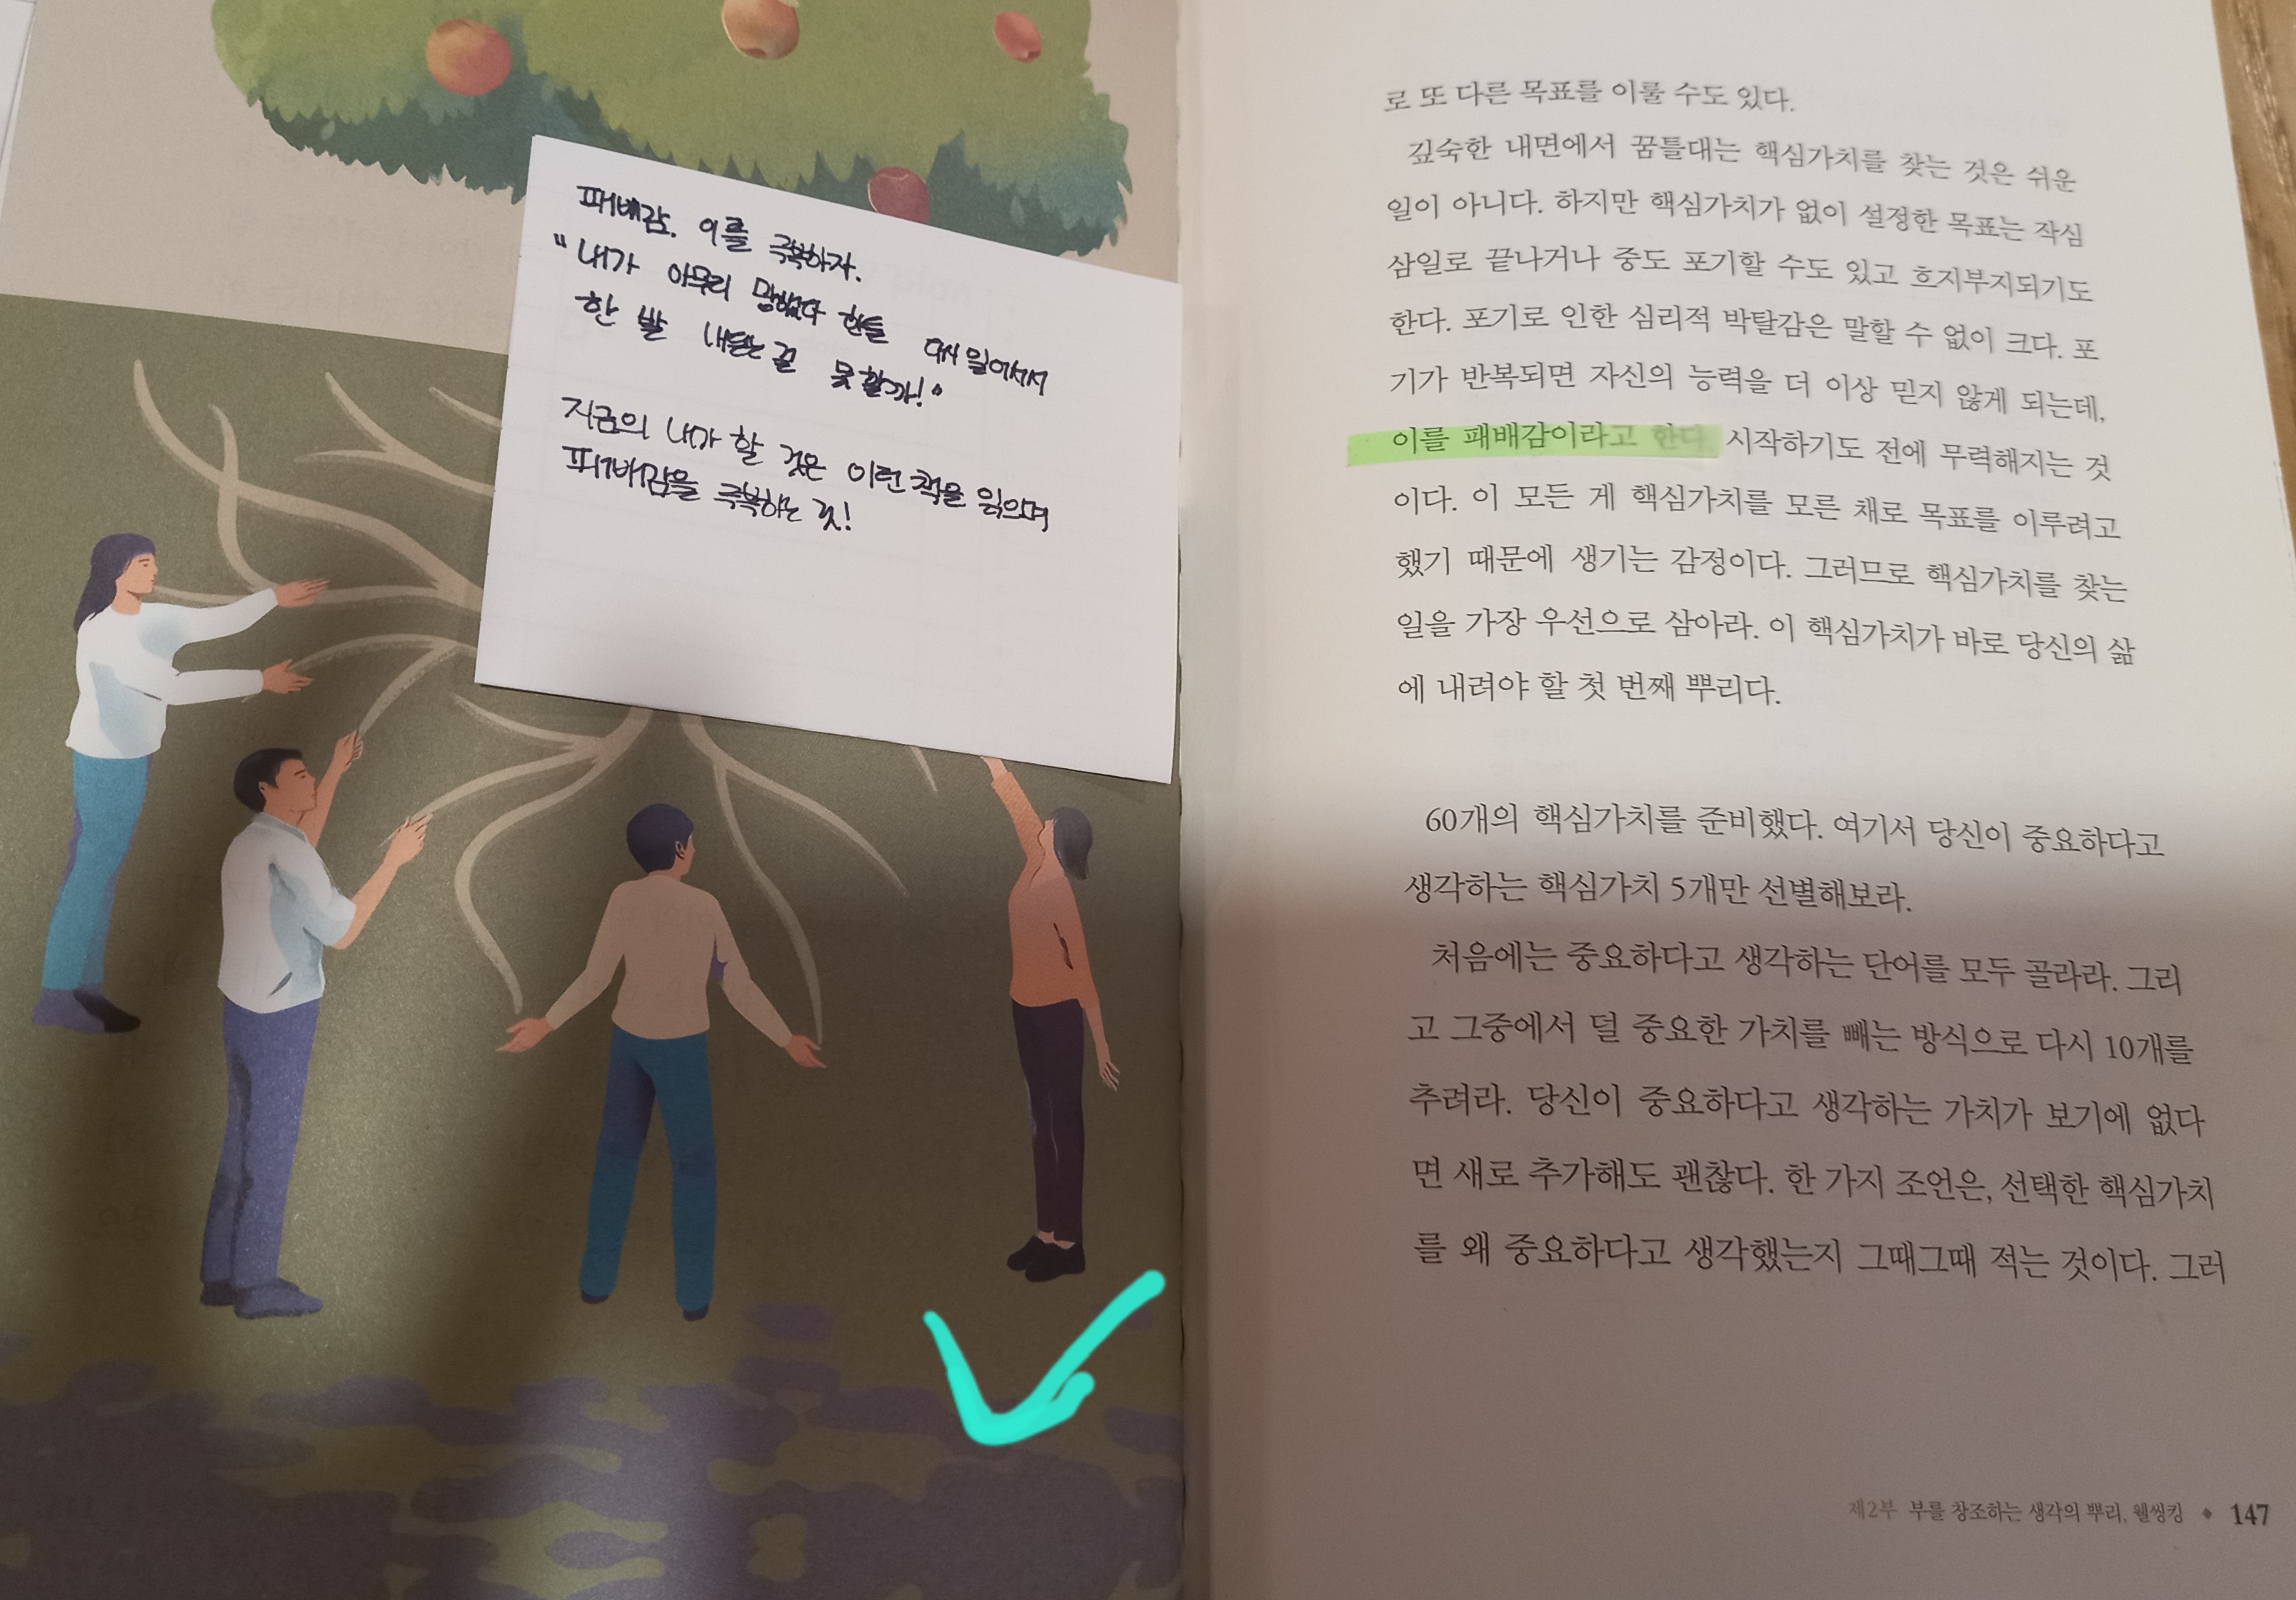 패배감. 이를 극복하자.
"내가 아무리 망했다 한들 다시 일어서서
한 발 내딛는 걸 못할까!"
지금의 내가 할 것은 이런 책을 읽으며
패배감을 극복하는 것!
로 또 다른 목표를 이룰 수도 있다.
깊숙한 내면에서 꿈틀대는 핵심가치를 찾는 것은 쉬운
일이 아니다. 하지만 핵심가치가 없이 설정한 목표는 작심
삼일로 끝나거나 중도 포기할 수도 있고 흐지부지되기도
한다. 포기로 인한 심리적 박탈감은 말할 수 없이 크다. 포
기가 반복되면 자신의 능력을 더 이상 믿지 않게 되는데,
이를 패배감이라고 한다. 시작하기도 전에 무력해지는 것
이다. 이 모든 게 핵심가치를 모른 채로 목표를 이루려고
했기 때문에 생기는 감정이다. 그러므로 핵심가치를 찾는
일을 가장 우선으로 삼아라. 이 핵심가치가 바로 당신의 삶
에 내려야 할 첫 번째 뿌리다.
60개의 핵심가치를 준비했다. 여기서 당신이 중요하다고
생각하는 핵심가치 5개만 선별해보라.
처음에는 중요하다고 생각하는 단어를 모두 골라라. 그리
고 그중에서 덜 중요한 가치를 빼는 방식으로 다시 10개를
추려라. 당신이 중요하다고 생각하는 가치가 보기에 없다
면 새로 추가해도 괜찮다. 한 가지 조언은, 선택한 핵심가치
를 왜 중요하다고 생각했는지 그때그때 적는 것이다. 그러
제2부 부를 창조하는 생각의 뿌리, 웰씽킹 ◆ 147